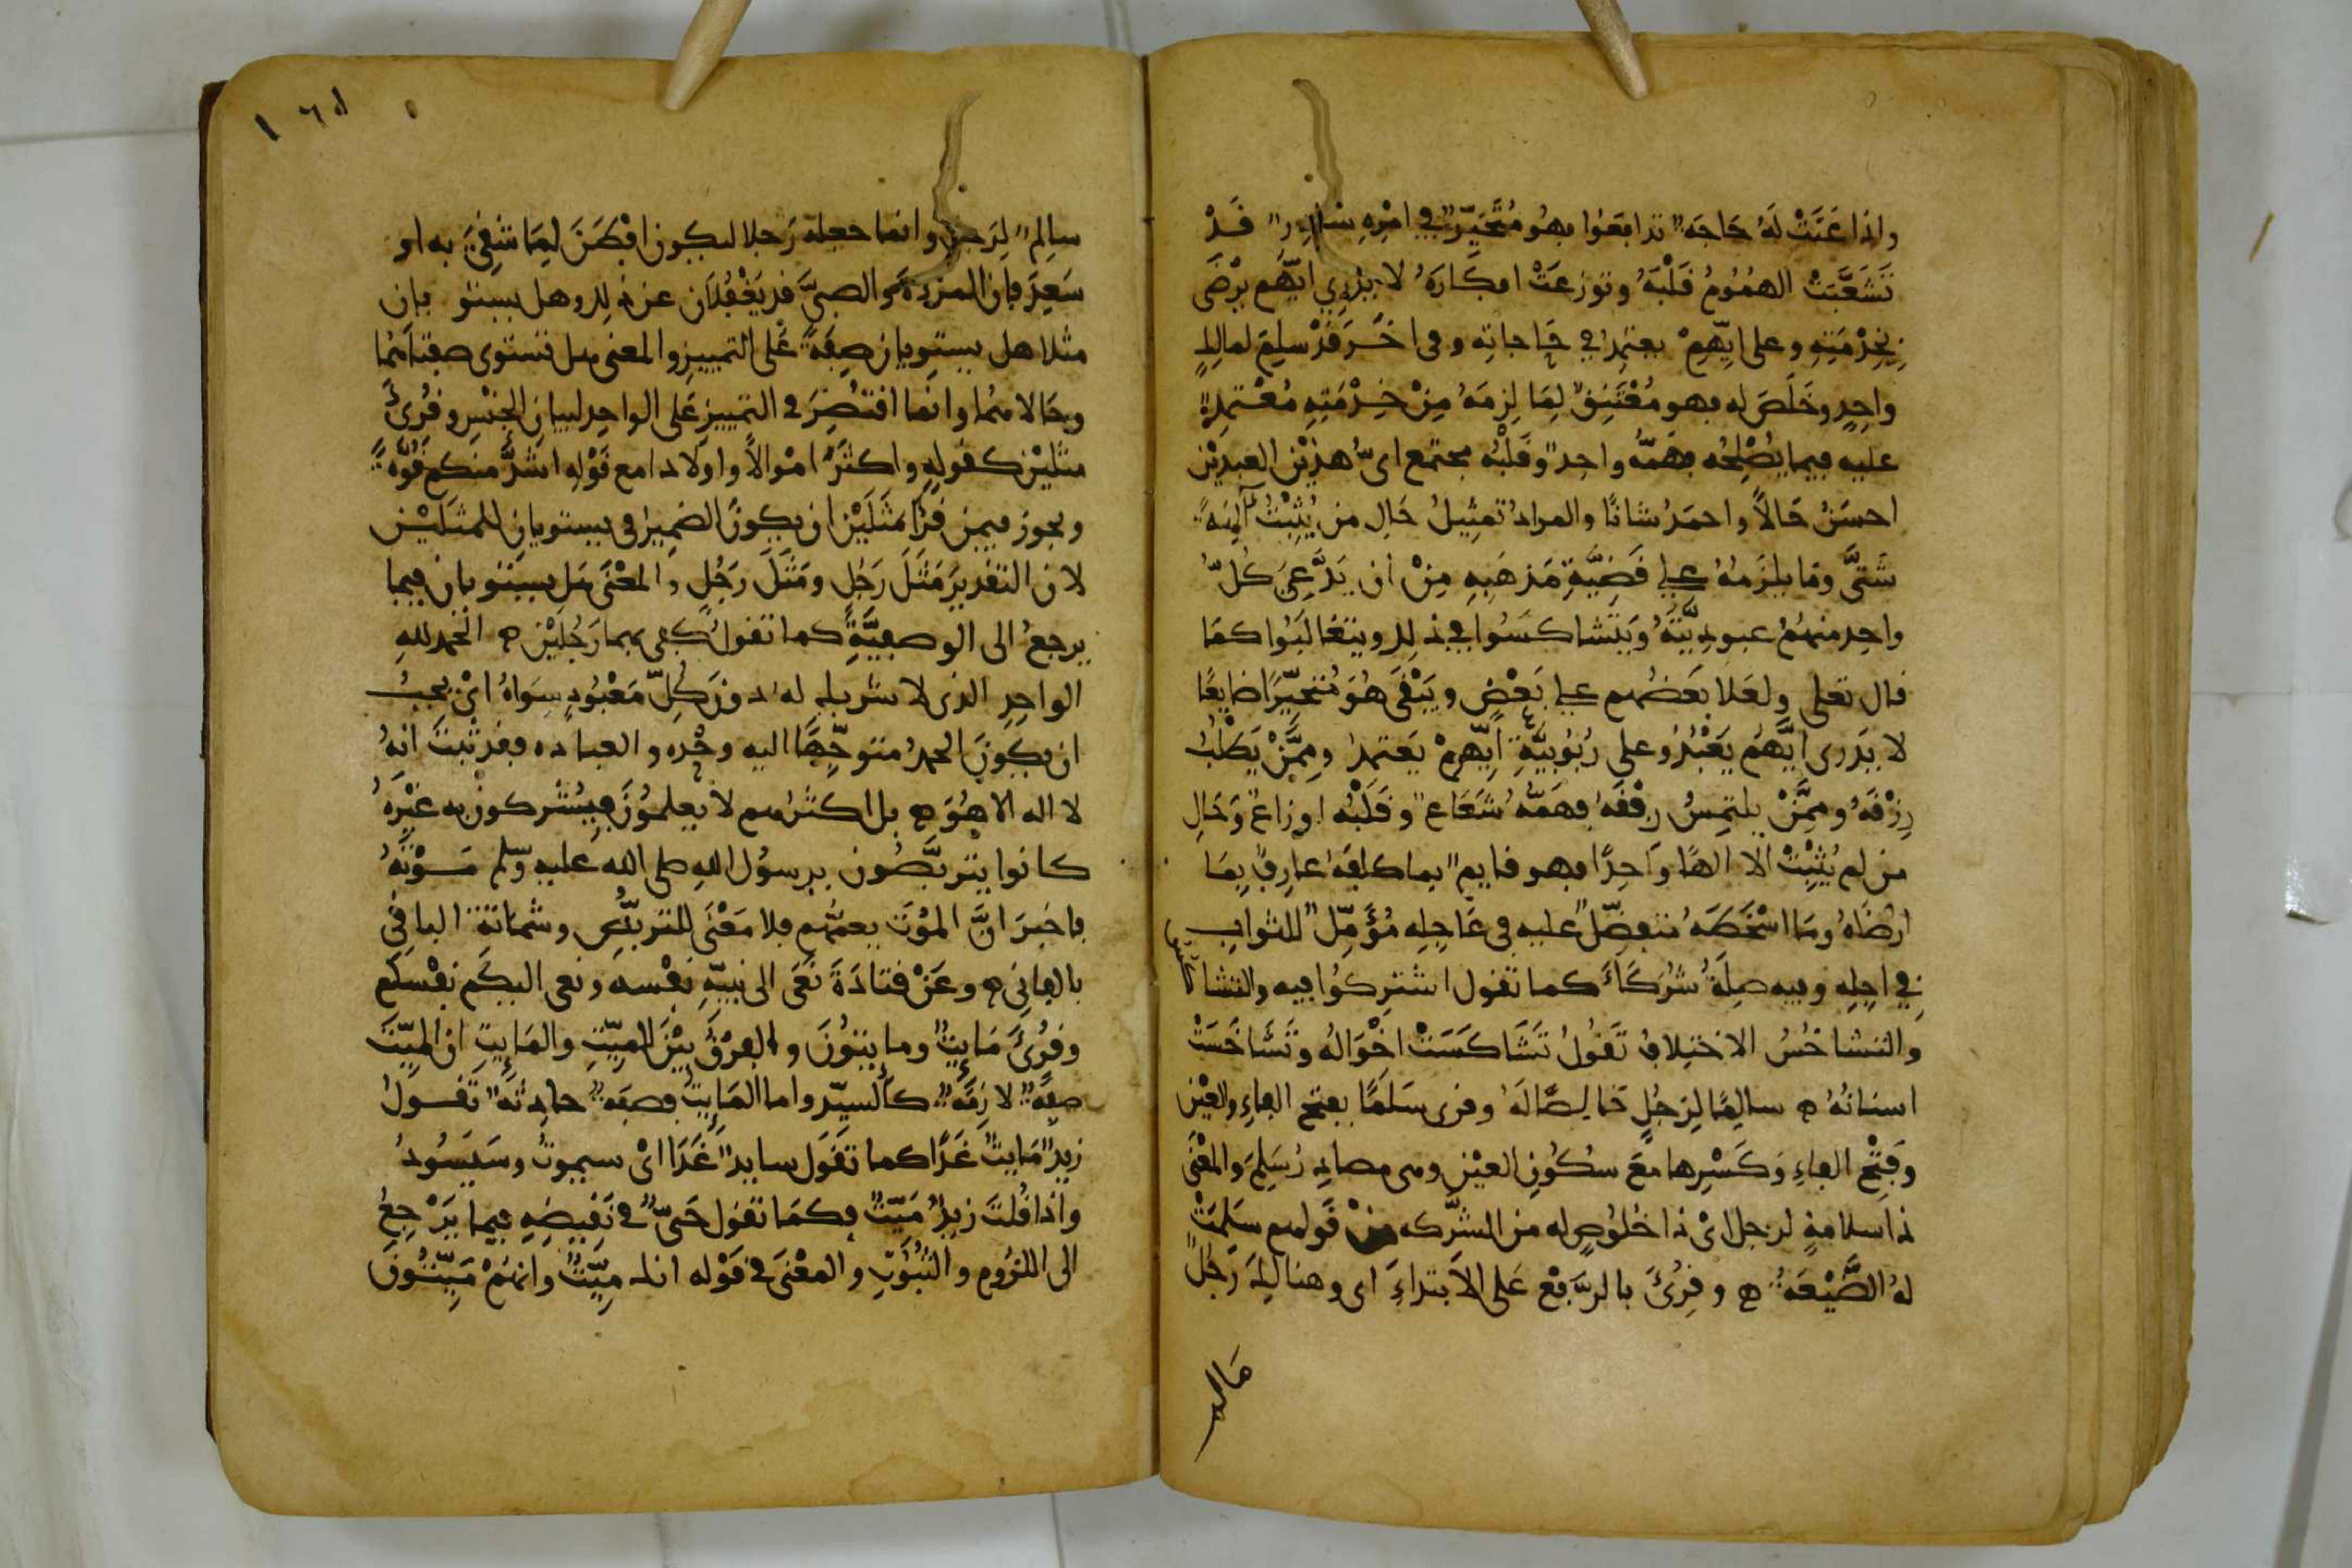 واذا عَنَتْ لَهُ حَاجَة تدافعوا فهُو مُتَحَيِّر في امْرِهِ سَادِر قَدْ
تَشَعَّبَتْ الهُمُومُ قَلْبَهُ وتوزعَتْ افكارَهُ لا يدْرِي ايّهُم يرْضَى
بِخِدْمَتِهِ وعلى ايِّهِمْ يعتمِدُ في حَاجاتِه وفى اخَرَ قدْ سلِمَ لمالِكٍ
واحِدٍ وخَلَصَ له فهو مُعْتَنِقٌ لِمَا لزِمَهُ مِنْ خِدْمَتِهِ مُعْتمِدٌ
عليه فيما يُصْلِحُه فهَمّهُ واحِد وقَلْبُه مجتمع اىّ هذيْن العبديْن
احسَنُ حَالاً واحمَدُ شانًا والمرادُ تمثِيلُ حَالِ من يُثْبِتُ آلِهَةً
شَتَّى وما يلزَمهُ على قَضِيَّةِ مَذهَبِهِ مِنْ ان يَدَّعِىَ كُلّ
واحِد منهُمْ عبودِيَّتَهُ ويَتَشاكَسُوا في ذلك ويتغالَبُوا كمَا
قال تعلى ولعَلا بَعضُهم على بَعْضٍ ويَبْقَى هُوَ مُتحَيِّرًا ضايِعًا
لا يَدرى ايَّهُم يَعْبُدُ وعلى رُبُوبيَّةِ ايِّهِمْ يَعتمدُ ومِمَّنْ يَطْلُبُ
رِزْقَهُ ومِمَّنْ يلتمِسُ رِفْقَهُ فهَمّهُ شَعَاع وقَلْبُه اوزاع وَحَالِ
من لم يُثْبِتْ الا الهًا وَاحِدًا فهو قايم بما كلفَهُ عارِف بِمَا
ارْضَاهُ ومَا اسْخَطَهُ متفضَّل عليه في عَاجِلِه مُؤَمِّل للثوابِ
في اجِلِه وفيه صِلَةُ شُرَكَاءَ كما تقول اشتركُوا فيه والتشاكس
والتشاخُسُ الاختِلافُ تَقُولُ تَشَاكَسَتْ احْوَالُهُ وتَشَاخَسَتْ
اسنانُهُ ه سالِمًا لِرَجُلٍ خَالِصًا لَهُ وقرى سَلَمًا بفتح الفاءِ والعَيْنِ
وفَتْحِ الفاءِ وكَسْرِها مَعَ سُكُونِ العيْنِ وهى مصادِر سَلِمَ والمعْنَى
ذا سلامةٍ لرجل اىْ ذا خُلُوصٍ له من الشّركه مِنْ قولهم سَلِمَتْ
لهُ الضَّيْعَةُ ه وقُرِئَ بالرَّفع عَلى الاَبتداءِ اى وهناك رَجُلٌ
سالِمٌ لِرَجلٍ وانما جعله رَجلا ليكون افْطَنَ لِمَا شَقِىَ به او
سَعِدَ فان المرءة والصبىَّ قد يَغْفُلاَن عن ذلك وهل يستو يان
مثلا هل يستوِيان صِفَةً عَلى التمييزِ والمعنى هل تستوى صفتاهُما
وحَالاهُما وانما اقتُصِرَ فى التمييزِ عَلى الواحِد لبيان الجنْسِ وقُرِئَ
مثليْن كقولِه واكثرَ امْوالاً واولادا مع قَوْلِه اشَدَّ منكم قُوَّةً
ويجوز فيمن قرَا مَثَلَيْن ان يكونَ الضمِيرُ فى يستويانِ للمثلَيْن
لان التقديرَ مَثَلَ رَجُلٍ ومَثَلَ رجُلٍ والمعْنَى هَل يستويان فيما
يرجعُ الى الوصفِيَّةِ كما تقولُ كفى بهما رَجُلَيْن ه الحَمد للهِ
الواحِدِ الذى لا شريك له دونَ كلّ مَعْبُودٍ سِوَاهُ اىْ يجبُ
ان يكونَ الحمدُ متوجِّهًا اليه وحْده والعباده فقد ثبتَ انهُ
لا اله الا هُوَ ه بل اكثرُهم لا يعلمُونَ فيُشْركون به غيْرَهُ
كانوا يتربَّصُون برسوُل اللهِ صلى الله عليه وسلم مَوْتَهُ
فاخبرَ انَّ الموْتَ يعمُّهم فلا مَعْنَى للتربُّصِ وشماتة الباقى
بالفانِى ه وعَنْ قتادَةَ نَعَى الى نبيّهِ نفْسه ونعى اليكم نفْسكم
وقُرِئَ مَايِتٌ ومايتونَ والفرْقُ بيْنَ الميّتِ والمَايِتِ ان الميّتَ
صِفَة لازِمَة كالسيّد واما المَايِتُ فصفة حادِثَة تَقولُ
زيد مَايت غَدًا كما تَقوَل سايد غَدًا اىْ سيموتُ وسَيَسُودُ
واذا قُلتَ زيد مَيّت فكمَا تقول حَىّ فى نَقِيضِهِ فيما يَرْجِعُ
الى اللزُومِ والثُبُوتِ والمعْنَى فى قَوْله انك مَيِّتٌ وانهُمْ مَيِّتُونَ